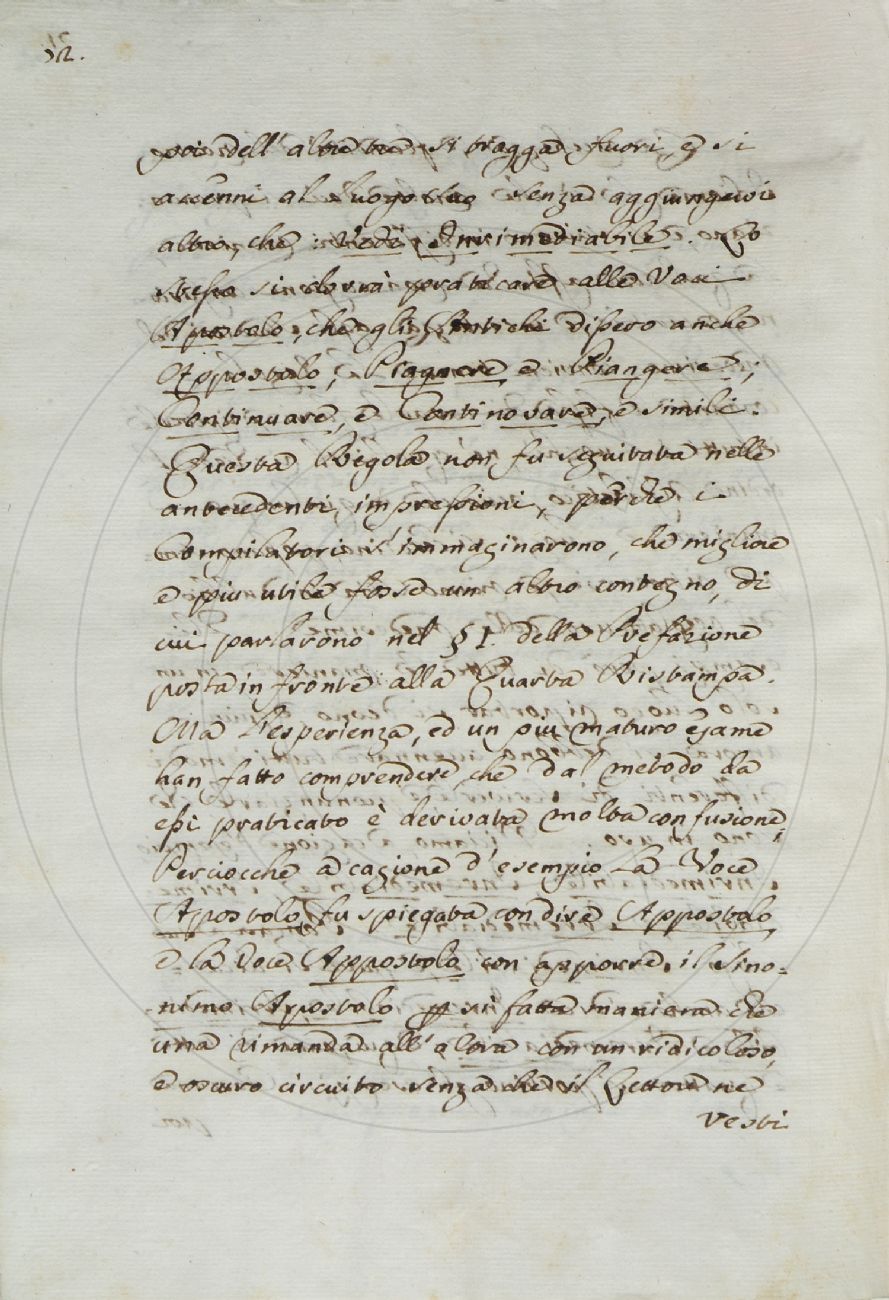 12.
poi dell' altre tre si tragga fuori, e si
accenni al luogo suo senza aggiungervi
altro, che: Vedi Inrimediabile. Lo
stesso si dovrà praticare alle Voci
Apostolo, che gli Antichi dissero anche
Appostolo; Piagnere e Piangere;
Continuare, e Continovare, e simili.
Questa Regola non fu seguitata nelle
antecedenti impressioni, perchè i
Compilatori s'immaginarono, che migliore
e piu utile fosse un altro contegno, di
cui parlarono nel § I. della Prefazione
posta in fronte alla Quarta Ristampa.
Ma l'esperienza, ed un piu maturo esame
han fatto comprendere, che dal metodo da
essi praticato è derivata molta confusione,
Perciocchè a cagione d'esempio la Voce
Apostolo fu spiegata con dire Appostolo
e la Voce Appostolo con apporre il Sino=
nimo Apostolo per sì fatta maniera che
una rimanda all' altra con un ridicoloso,
e oscuro circuito senza che il Lettore ne
resti